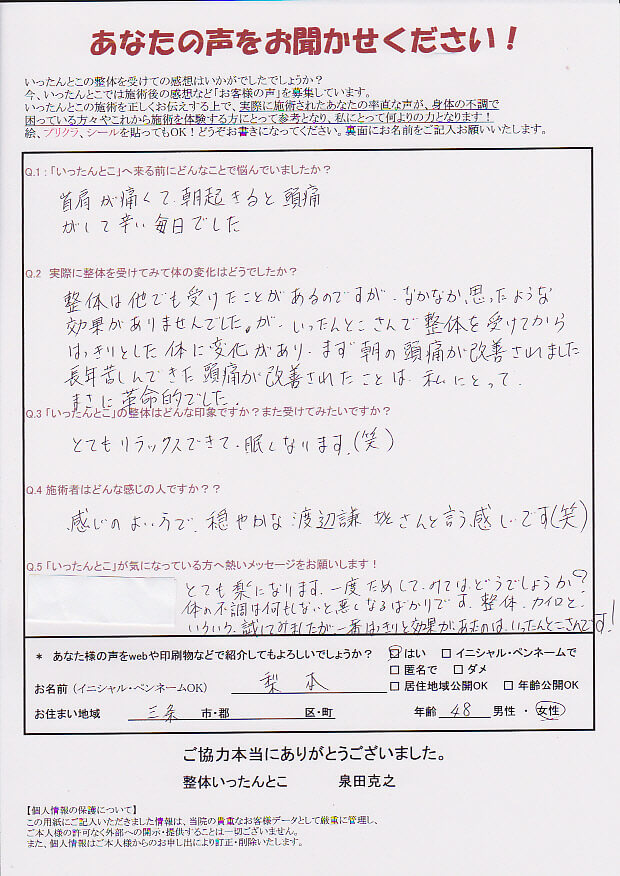 あなたの声をお聞かせください！
いったんとこの整体を受けての感想はいかがでしたでしょうか？
今、いったんとこでは施術後の感想など「お客様の声」を募集しています。
いったんとこの施術を正しくお伝えする上で、実際に施術されたあなたの率直な声が、身体の不調で
困っている方々やこれから施術を体験する方にとって参考となり、私にとって何よりの力となります！
絵、プリクラ、シールを貼ってもOK！どうぞお書きになってください。裏面にお名前をご記入お願いいたします。
Q.1：「いったんとこ」へ来る前にどんなことで悩んでいましたか？
首肩が痛くて、朝起きると頭痛
がして辛い毎日でした
Q.2 実際に整体を受けてみて体の変化はどうでしたか？
整体は他でも受けたことがあるのですが、なかなか思ったような
効果がありませんでした。が、いったんとこさんで整体を受けてから
はっきりとした体に変化があり、まず朝の頭痛が改善されました
長年苦しんできた頭痛が改善されたことは、私にとって、
まさに革命的でした。
Q.3「いったんとこ」の整体はどんな印象ですか？また受けてみたいですか？
とてもリラックスできて、眠くなります。(笑)
Q.4 施術者はどんな感じの人ですか？？
感じのよい方で、穏やかな渡辺謙 さんと言う感じです(笑)
Q.5「いったんとこ」が気になっている方へ熱いメッセージをお願いします！
とても楽になります。一度ためしてみてはどうでしょうか？
体の不調は何もしないと悪くなるばかりです。整体、カイロと、
いろいろ、試してみましたが、一番はっきりと効果があったのは、いったんとこさんです！
＊ あなた様の声をwebや印刷物などで紹介してもよろしいでしょうか？ □はい □イニシャル・ペンネームで
□匿名で □ダメ
お名前（イニシャル・ペンネームOK） 梨本 □居住地域公開OK □年齢公開OK
お住まい地域 三条 市・郡 区・町 年齢 48 男性・女性
ご協力本当にありがとうございました。
整体いったんとこ 泉田克之
【個人情報の保護について】
この用紙にご記入いただきました情報は、当院の貴重なお客様データとして厳重に管理し、
ご本人様の許可なく外部への開示・提供することは一切ございません。
また、個人情報はご本人様からのお申し出により訂正・削除いたします。